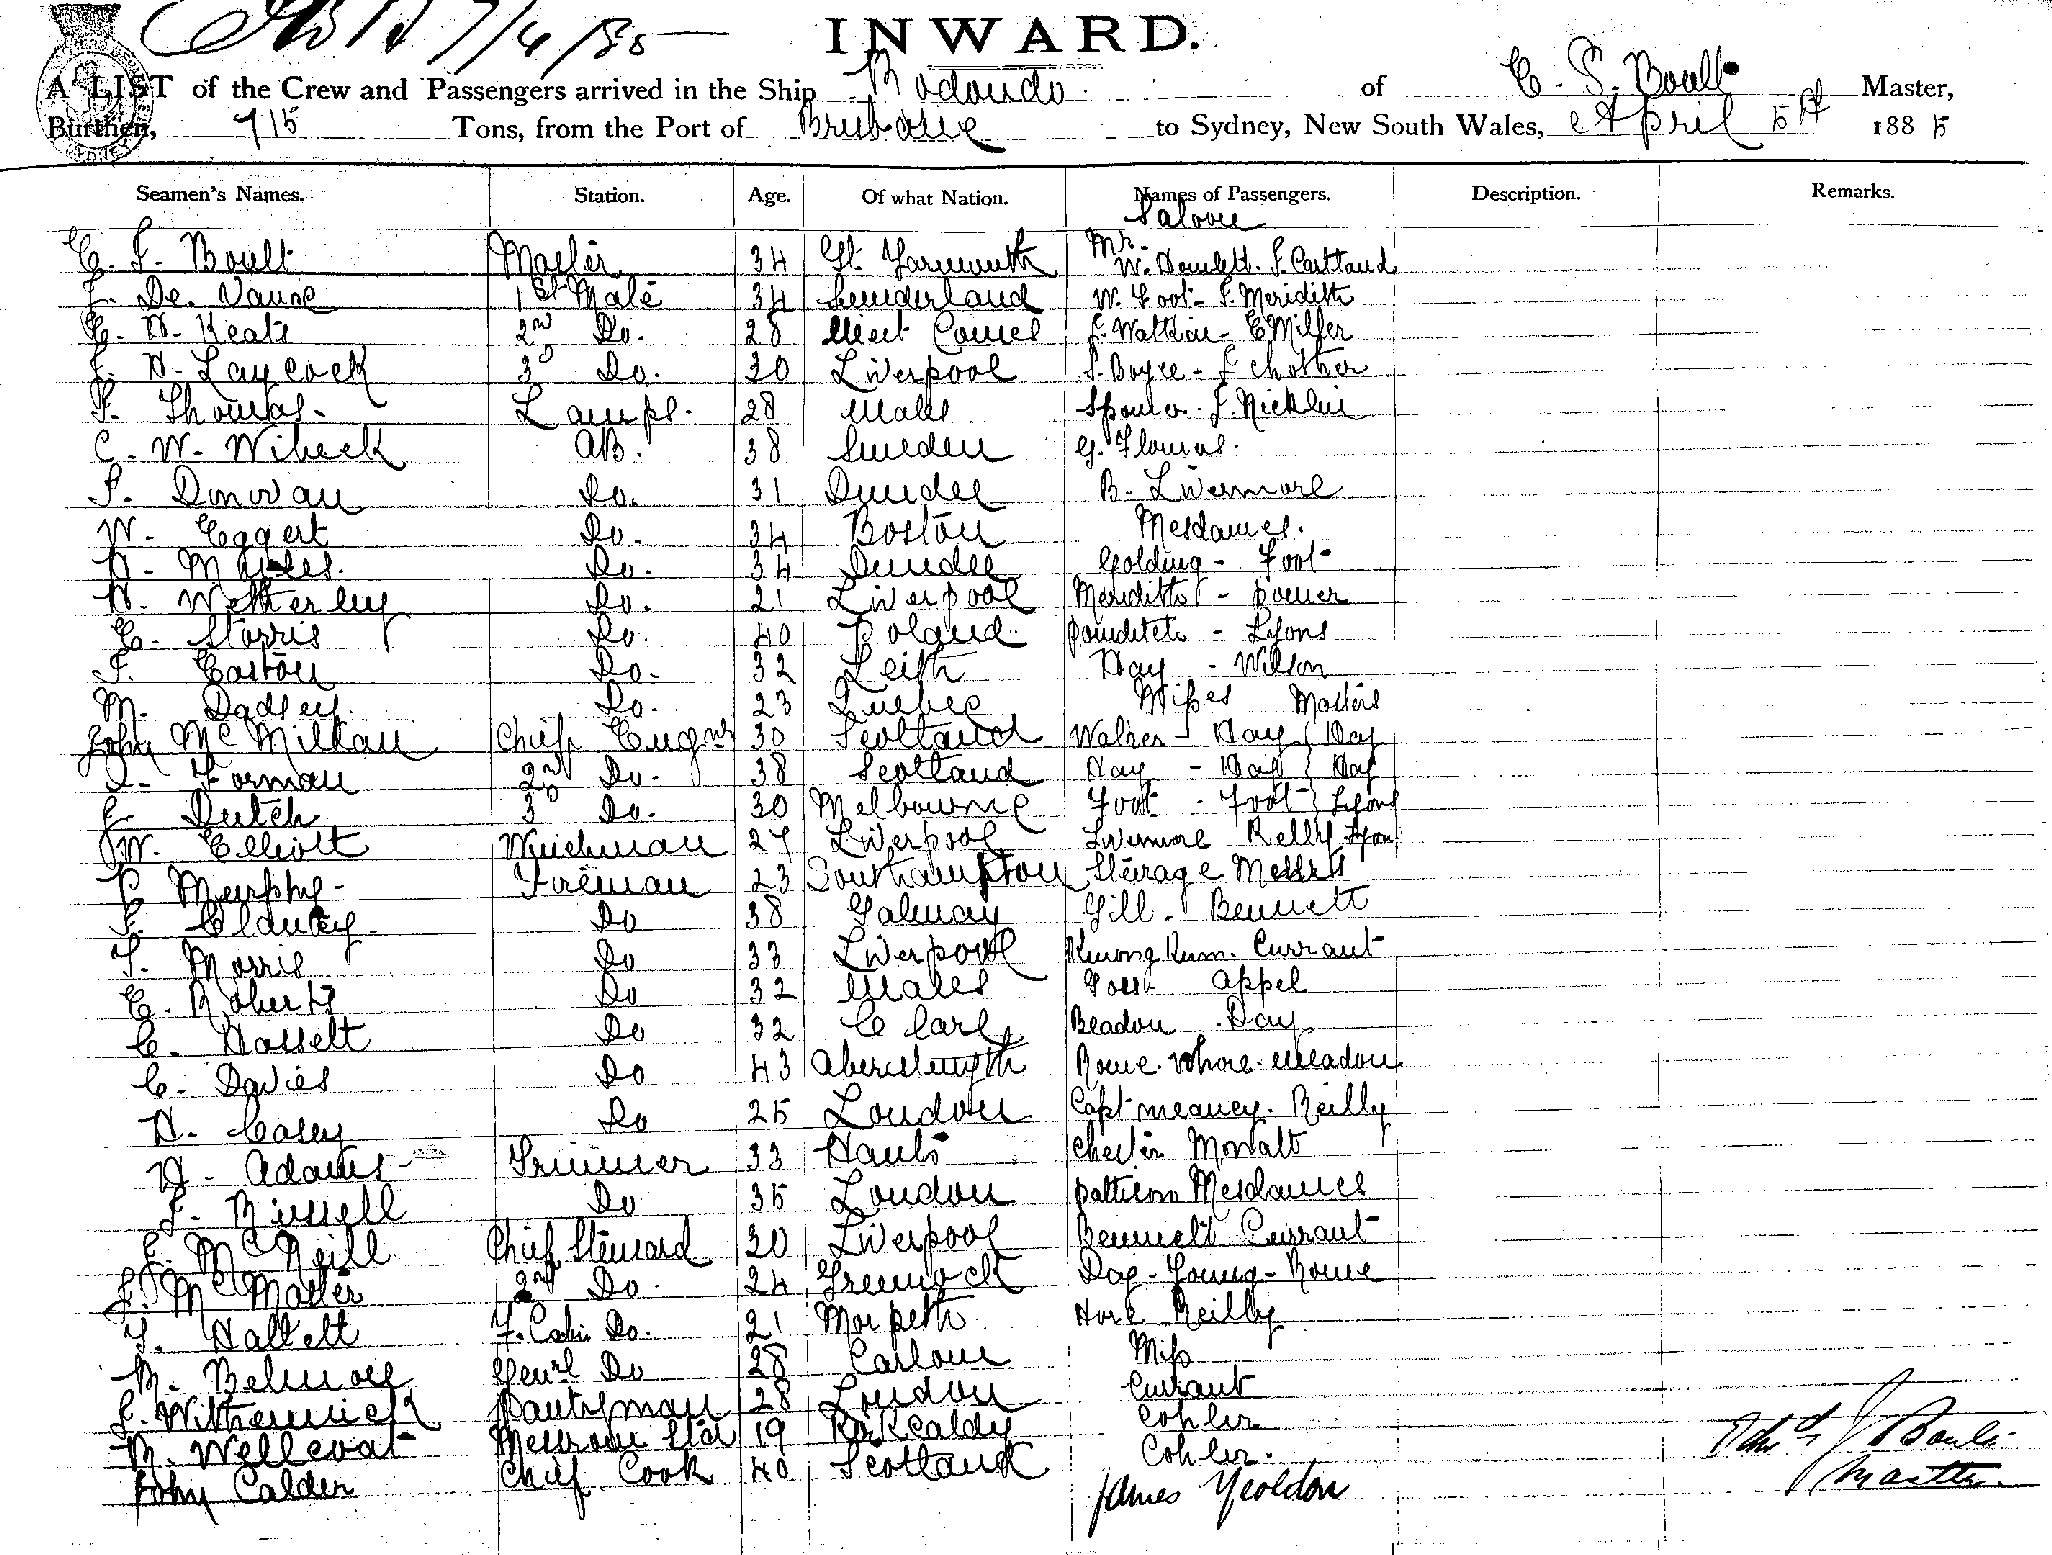 7/4/85
INWARD.
A LIST of the Crew and Passengers arrived in the Ship Rodondo of E. J. Boult Master,
Burthen, 715 Tons, from the Port of Brisbane to Sydney, New South Wales, April 5th 1885
Seamen's Names. Station. Age. Of what Nation. Names of Passengers. Description. Remarks.
Saloon
E. J. Boult Master 34 Gt. Yarmouth Mr. W. Howlett. J. Cartland
J. De. Vause 1st Mate 34 Sunderland W. Foot - J. Meredith
E. H. Keats 2nd Do. 28 West Cowes J. E Miller
J. H. Laycock 3d Do. 30 Liverpool S. Boyce - J
T. Thomas. Lamps. 28 Wales J. Nicklin
C. W. Wibeck AB. 38 Sweden G.
J. Donovan Do. 31 Dundee B. Livermore
W. Eggert Do. 34 Boston Mesdames.
H. Do. 34 Dundee Golding - Foot
H. Wetherley Do. 21 Liverpool Meredith - Power
G. Storris Do. 40 Poland. - Lyons
J. Easton Do. 32 Leith Hay - Wilson
M. Dadley. Do. 23 Quebec Misses Masters
John McMillan Chief Engnr 30 Scotland Walker - Hay Hay
Forman 2nd Do. 38 Scotland Hay - Hay Hay
J. Dutch 3d Do. 30 Melbourne Foot - Foot Lyons
W. Elliott Winchman 27 Liverpool Livermore Kelly Lyons
P. Murphy - Fireman 23 Southampton Steerage Messrs
J. Clancey Do 38 Galway Gill - Bennett
T. Morris Do 33 Liverpool Kwong Kum. Currant
E. Roberts Do 32 Wales Appel
C. Hassett Do 32 Beadon Day
C. Davies Do 43 Aberystwyth Rowe
H. Casey Do 25 London Capt Meaney. Reilly
H. Adams Trimmer 33 Hants
J. Bissell Do 35 London Mesdames
J. McNeill Chief Steward 30 Liverpool Bennett Currant
J. McMaster 2nd Do. 24 Greenock Day - Young - Rowe
T. Hallett F. Cabin Do. 21 Morpeth Hore Reilly
M. Belmore Genrl Do 28 Carlow Miss
J. Witherwick Pantryman 28 London Currant
Cohler
M. Messroom Std 19 Kirkcaldy Cohler.
John Calder Chief Cook 40 Scotland
James Yeoldon
Edwd J Boult
Master.